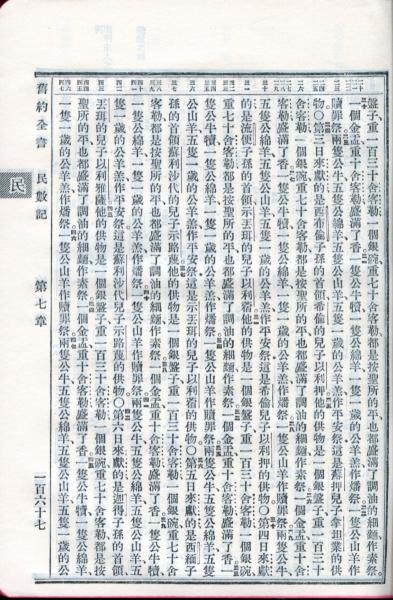 盤子、重一百三十舍客勒、一個銀碗、重七十舍客勒、都是按聖所的平、也都盛滿了調油的細麵、作素祭、
一個金盂重十舍客勒、盛滿了香、一隻公牛犢、一隻公綿羊、一隻一歲的公羊羔作燔祭、一隻公山羊作
贖罪祭兩隻公牛五隻公綿羊五隻公山羊五隻一歲的公羊羔作平安祭這是蘇押兒子拿坦業的供
物○第三日來獻的是西布倫子孫的首領希倫的兒子以利押他的供物是一個銀盤子、重一百三十
舍客勒、一個銀碗重七十舍客勒都是按聖所的平也都盛滿了調油的細麵作素祭、一個金盂重十
舍客勒盛滿了香、一隻公牛犢、一隻公綿羊、一隻一歲的公羊羔作燔祭一隻公山羊作贖罪祭兩隻公牛、
五隻公綿羊五隻公山羊五隻一歲的公羊羔作平安祭這是希倫兒子以利押的供物○第四日來獻
的是流便子孫的首領示丟珥的兒子以利蓿他的供物是一個銀盤子、重一百三十舍客勒、一個銀碗
重七十舍客勒都是按聖所的平也都盛滿了調油的細麵作素祭一個金盂重十舍客勒盛滿了香、一
隻公牛犢、一隻公綿羊、一隻一歲的公羊羔作燔祭一隻公山羊作贖罪祭兩隻公牛五隻公綿羊五隻
公山羊五隻一歲的公羊羔作平安祭這是示丟珥的兒子以利蓿的供物○第五日來獻的是西緬子
孫的首領蘇利沙代的兒子示路蔑他的供物是一個銀盤子、重一百三十舍客勒、一個銀碗重七十舍
客勒都是按聖所的平也都盛滿了調油的細麵作素祭一個金盂重十舍客勒盛滿了香一隻公牛犢、
一隻公綿羊、一隻一歲的公羊羔作燔祭一隻公山羊作贖罪祭兩隻公牛五隻公綿羊五隻公山羊五
隻一歲的公羊羔作平安祭這是蘇利沙代兒子示路蔑的供物○第六日來獻的是迦得子孫的首領
丟珥的兒子以利雅薩他的供物是一個銀盤子、重一百三十舍客勒、一個銀碗重七十舍客勒都是按
聖所的平也都盛滿了調油的細麵作素祭一個金盂重十舍客勒盛滿了香一隻公牛犢一隻公綿羊、
一隻一歲的公羊羔作燔祭一隻公山羊作贖罪祭兩隻公牛五隻公綿羊五隻公山羊五隻一歲的公
舊約全書 民數記 第七章 一百六十七
民